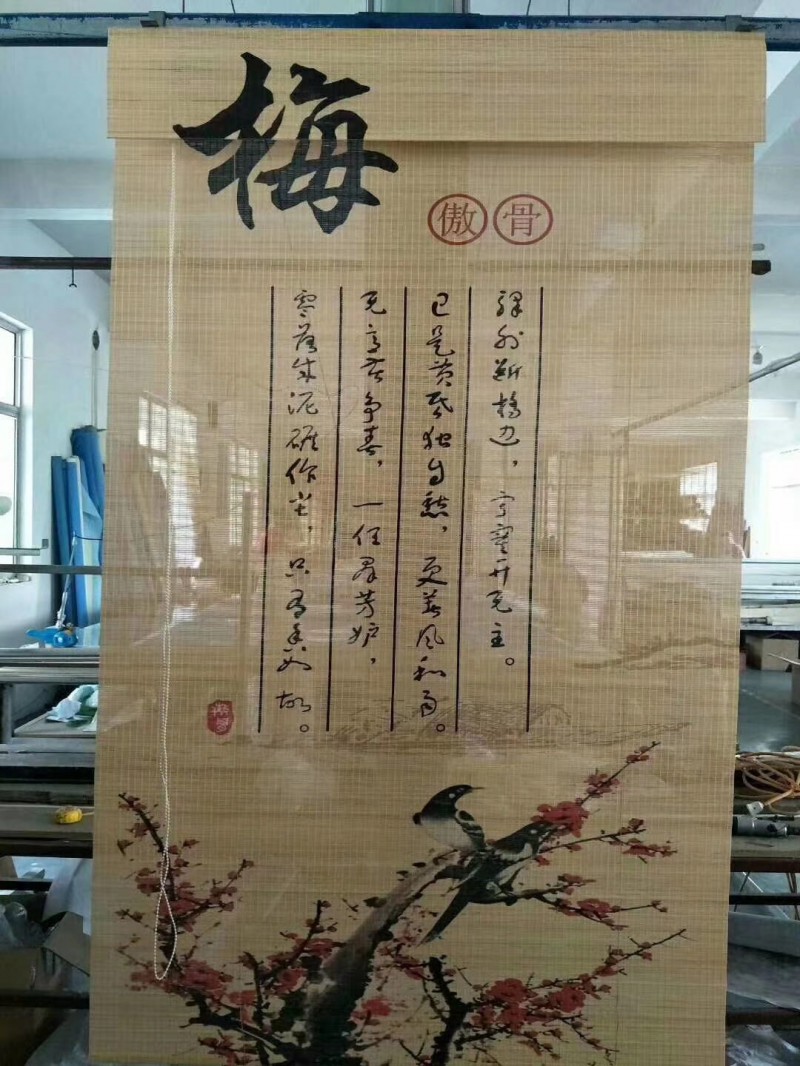 梅
傲骨
驿外断桥边，寂寞开无主。
已是黄昏独自愁，更著风和雨。
无意苦争春，一任群芳妒，
零落成泥碾作尘，只有香如故。